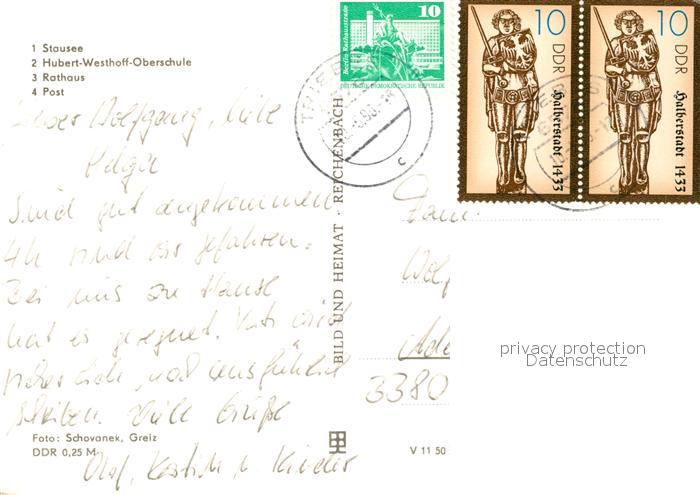 1 Stausee
2 Hubert-Westhoff-Oberschule
3 Rathaus
4 Post
Lieber Wolfgang,
Sind gut angekommen
4h sind wir gefahren.
Bei uns zu Hause
hat es geregnet.
sicherlich noch ausführlich
schreiben. Viele Grüße
Olaf, Kerstin u. Kinder
Foto: Schovanek, Greiz
DDR 0,25 M
BILD UND HEIMAT · REICHENBACH
V 11 50
Berlin·Rathausstraße
10
DEUTSCHE DEMOKRATISCHE REPUBLIK
10
DDR
Halberstadt 1433
10
DDR
Halberstadt 1433
c
Fam.
Wolf
3380
privacy protection
Datenschutz